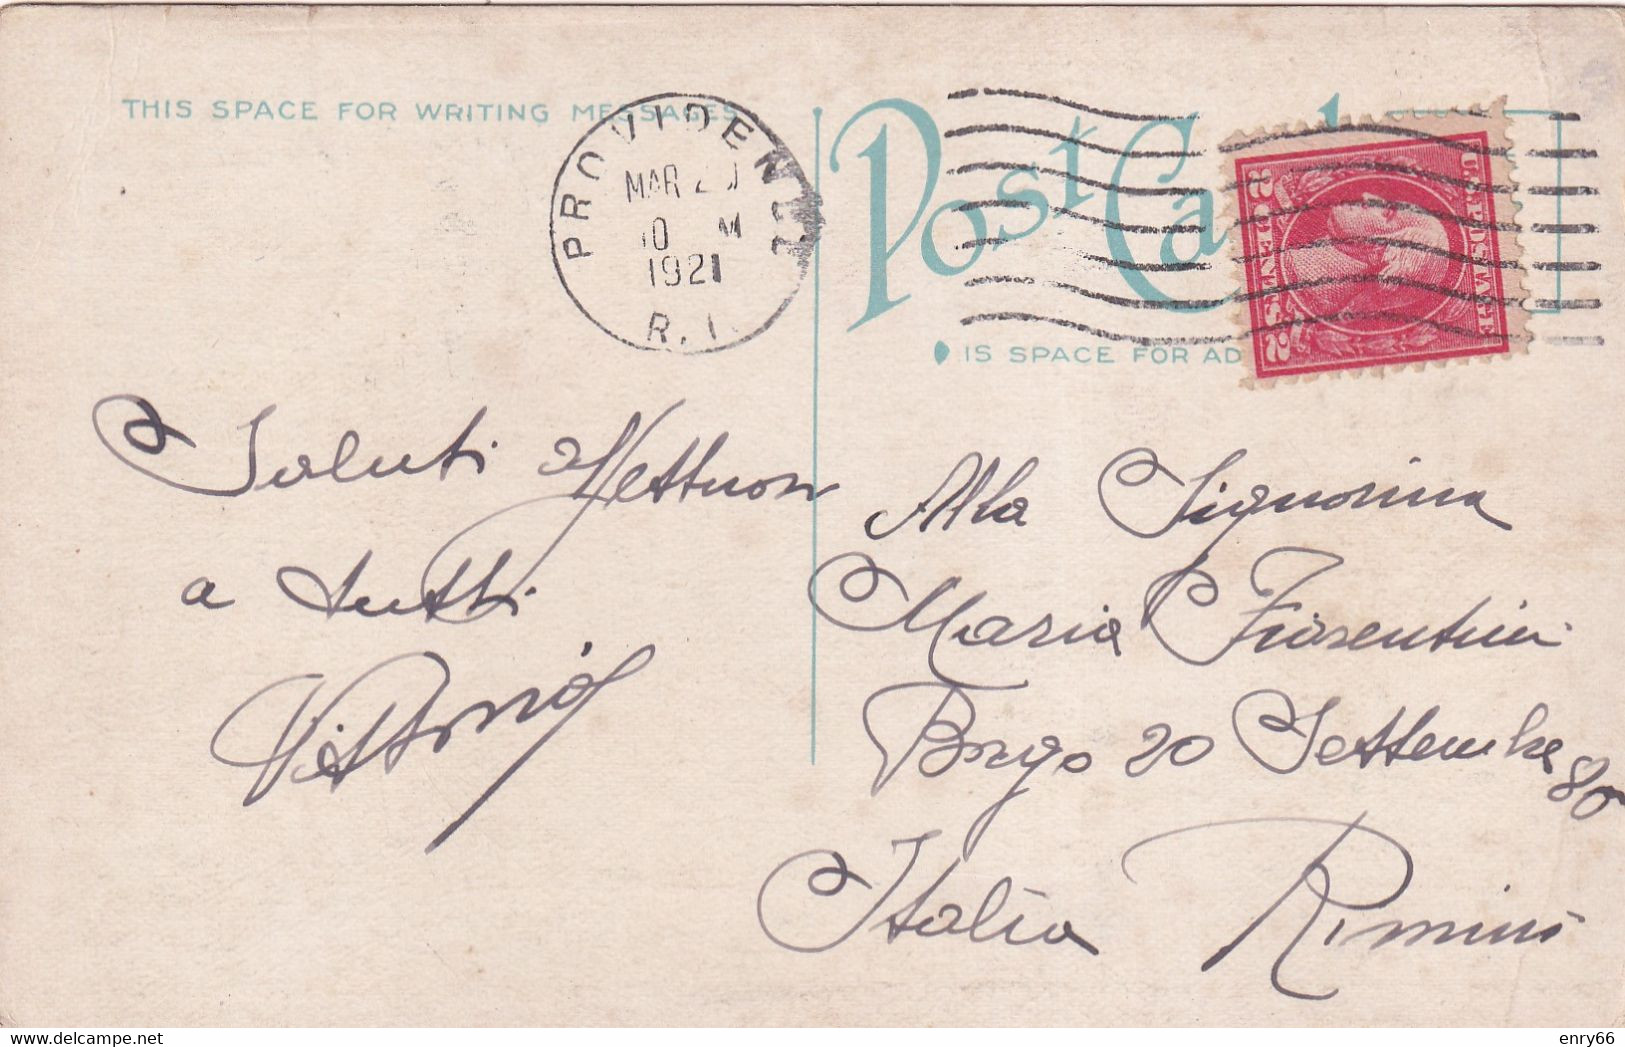 THIS SPACE FOR WRITING MESSAGES
PROVIDENCE
MAR 2
10 M
1921
R. I.
Post Card
U.S. POSTAGE
2 CENTS 2
IS SPACE FOR AD
Saluti affettuosi
a tutti
Vittorio
Alla Signorina
Maria Fiorentini
Borgo 20 Settembre 80
Italia Rimini
delcampe.net
enry66